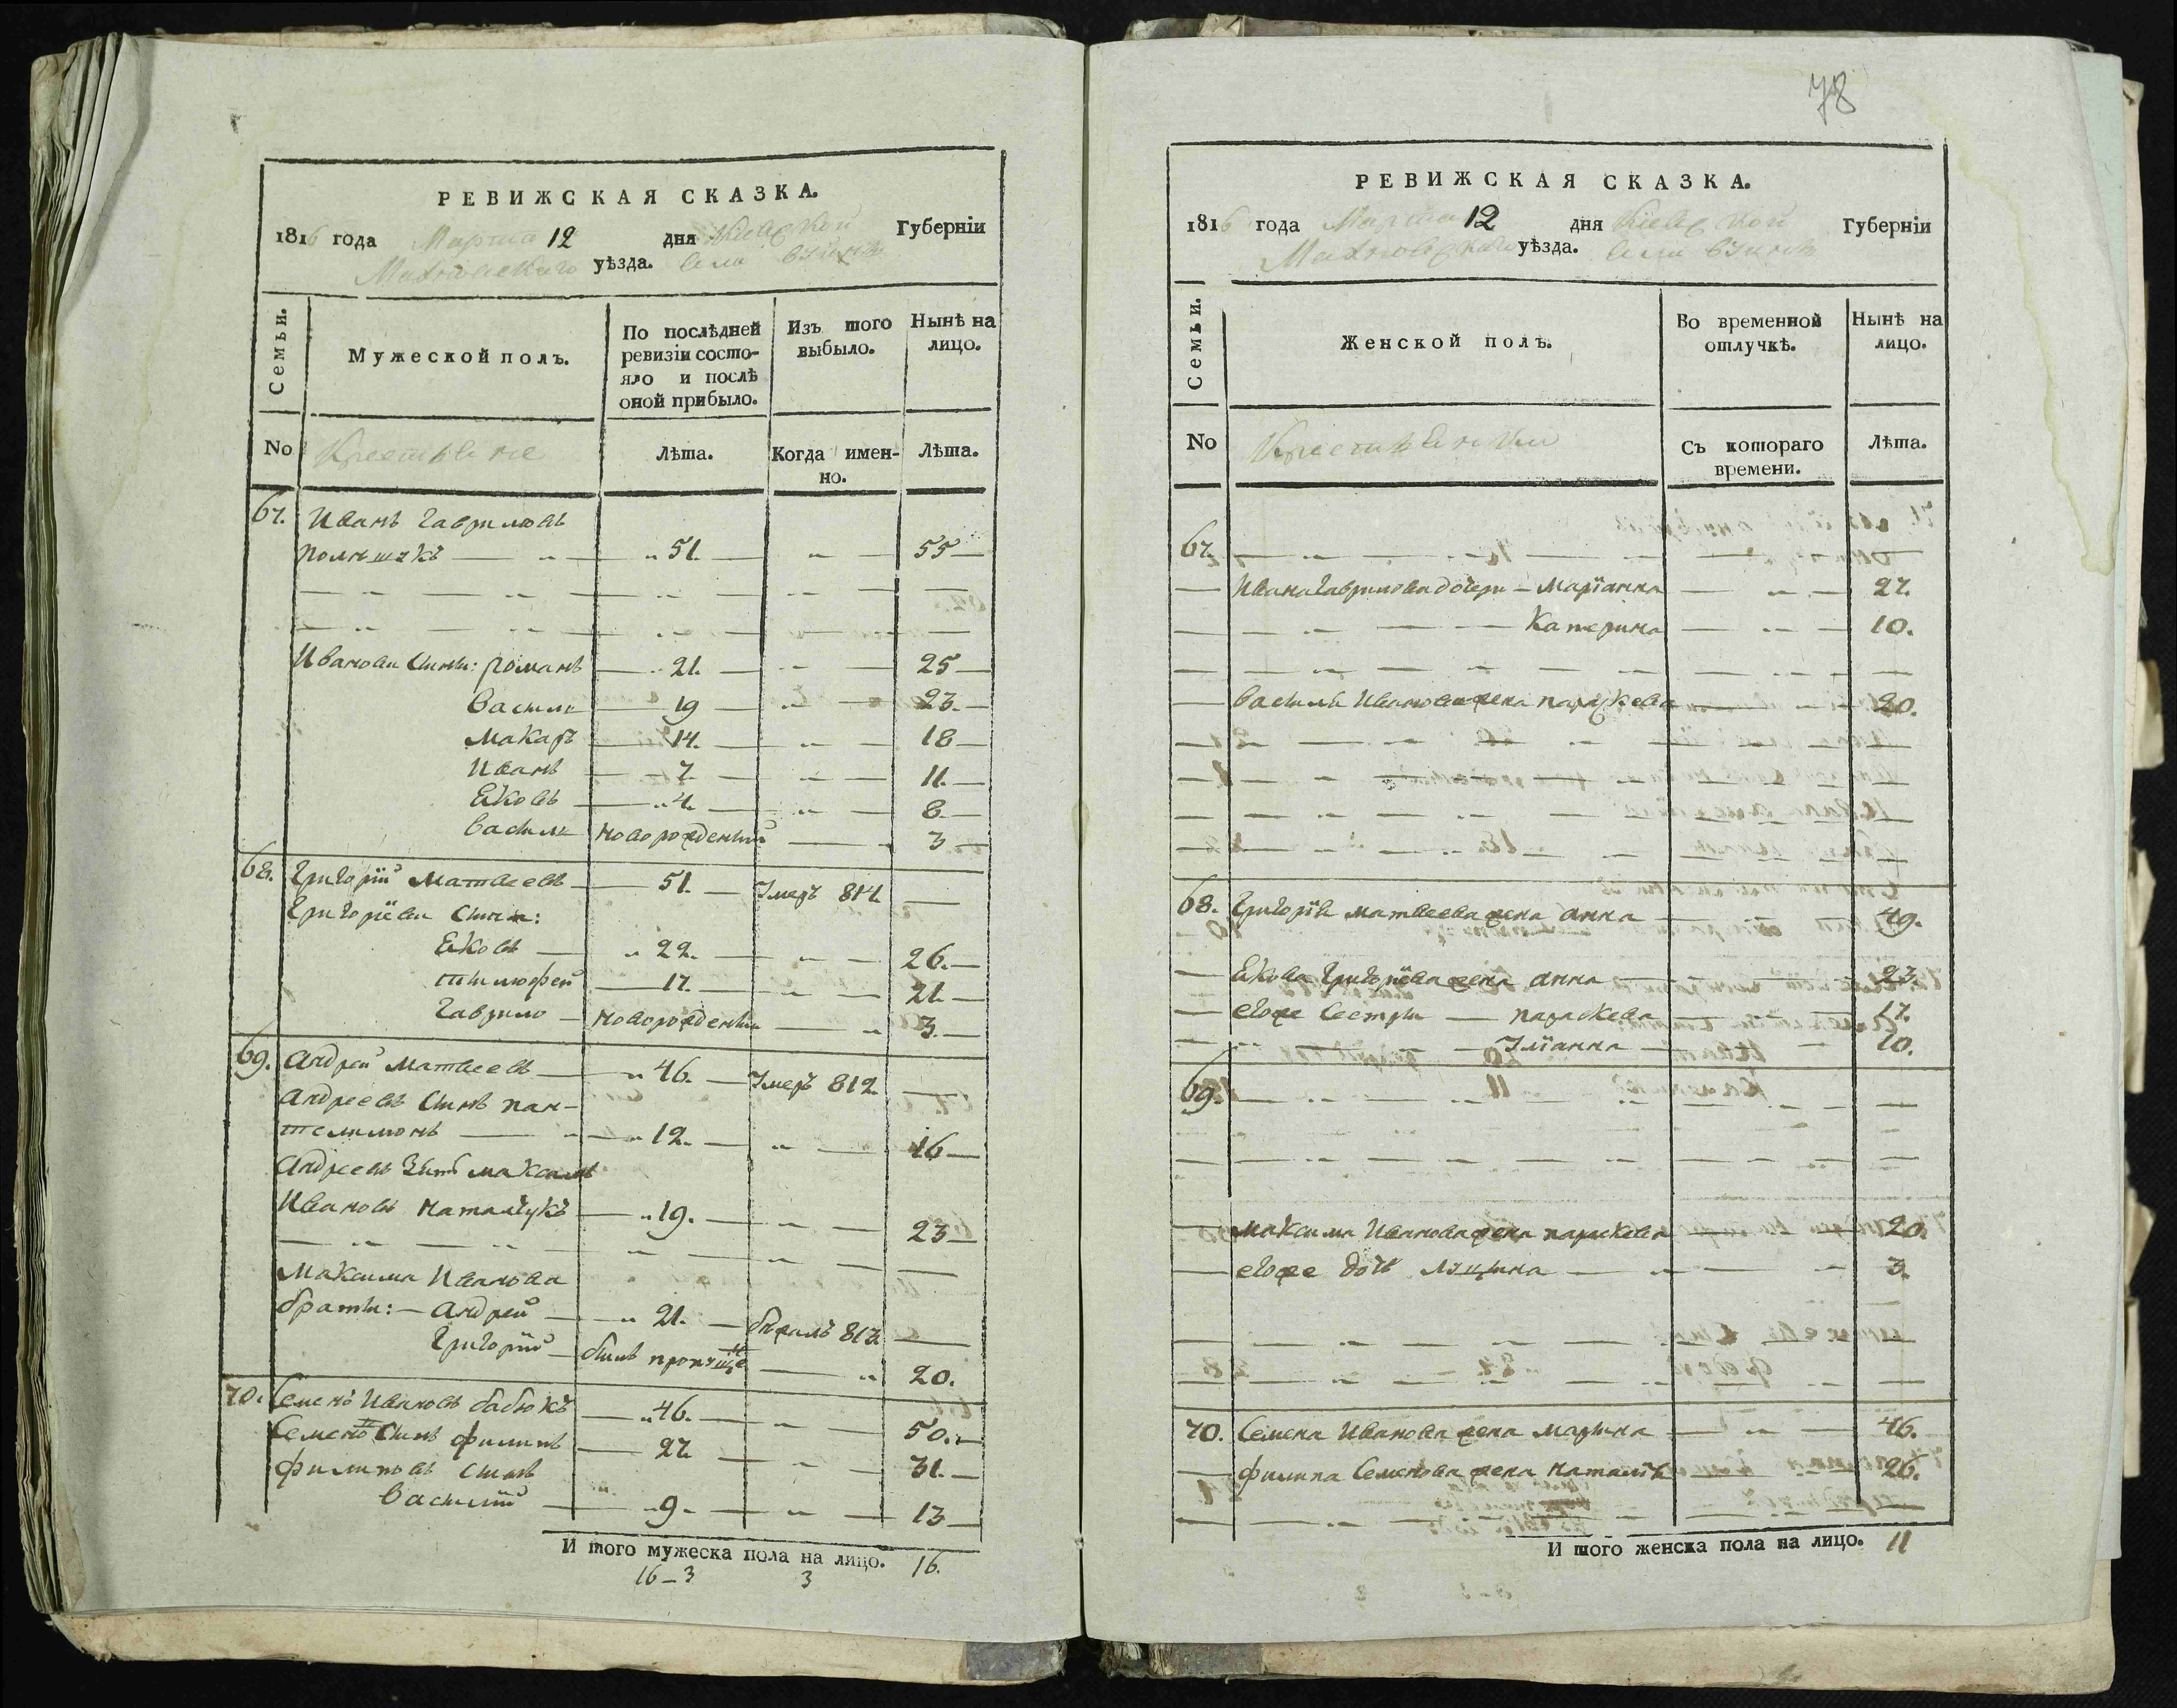 РЕВИЖСКАЯ СКАЗКА.
1816 года Марта 12 дня Кіевской Губерніи
Махновского уѣзда. Села
Семьи.
Мужеской полъ.
По послѣдней ревизіи состо-
яло и послѣ
оной прибыло.
Изъ того
выбыло.
Нынѣ на
лицо.
No
Крестьяне
Лѣта.
Когда имен-
но.
Лѣта.
67. Иванъ Гавриловъ
полищукъ 51. 55
Иванови сыны: Романъ 21. 25
Василь 19 23.
Макаръ 14. 18
Иванъ 7. 11.
Яковъ 4. 8.
Василь новорожденный 3
68. Григорій Матвеевъ 51. Умеръ 814.
Григоріеви сыны:
Яковъ 22. 26.
Тимофей 17. 21.
Гаврило новорожденны 3.
69. Андрей Матвеевъ 46. Умеръ 812.
Андреевъ сынъ пан-
телимонъ 12. 16
Андреевъ зять Максимъ
Ивановъ Натальчукъ 19. 23
Максима Иванова
браты: Андрей 21. бѣжалъ 813.
Григорій 20.
70. Семенъ Ивановъ бабюкъ 46. 50.
Семеновъ сынъ Филипъ 27. 31.
Филиповъ сынъ
Василій 9. 13
И того мужеска пола на лицо. 16.
16-3 3
78
РЕВИЖСКАЯ СКАЗКА.
1816 года Марта 12 дня Кіевской Губерніи
Махновского уѣзда. Села
Семьи.
Женской полъ.
Во временной
отлучкѣ.
Нынѣ на
лицо.
No
Крестьянки
Съ котораго
времени.
Лѣта.
67.
Ивана Гаврилова дочери Маріанна 27.
Катерина 10.
Василя Иванова жена параскева 20.
68. Григорія Матвеева жена Анна 49.
Якова Григоріева жена Анна 23.
егоже сестры параскева 17.
Уліанна 10.
69.
Максима Иванова жена параскева 20.
егоже дочь 3.
70. Семена Иванова жена Марина 46.
Филипа Семенова жена Наталія 26.
И того женска пола на лицо. 11